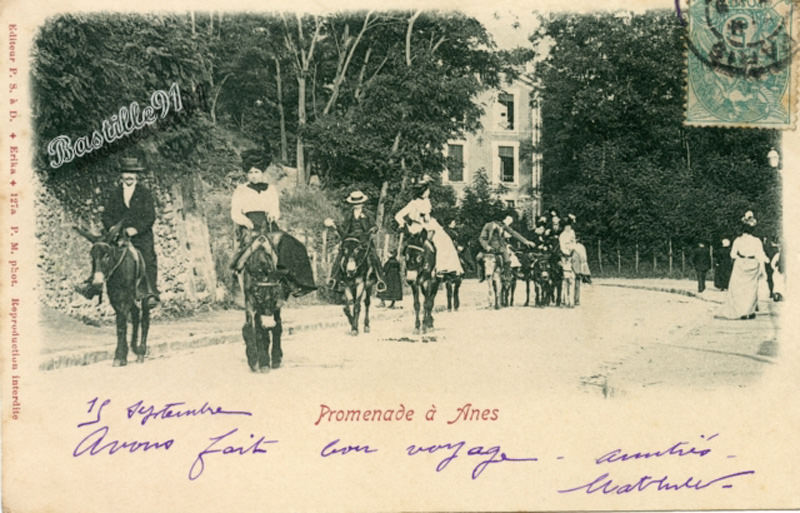 Editeur P. S. à D. ✦ Erika ✦ 127a P. M. phot. Reproduction interdite
Bastille91
PARIS
Promenade à Anes
15 Septembre
Avons fait bon voyage - amitiés -